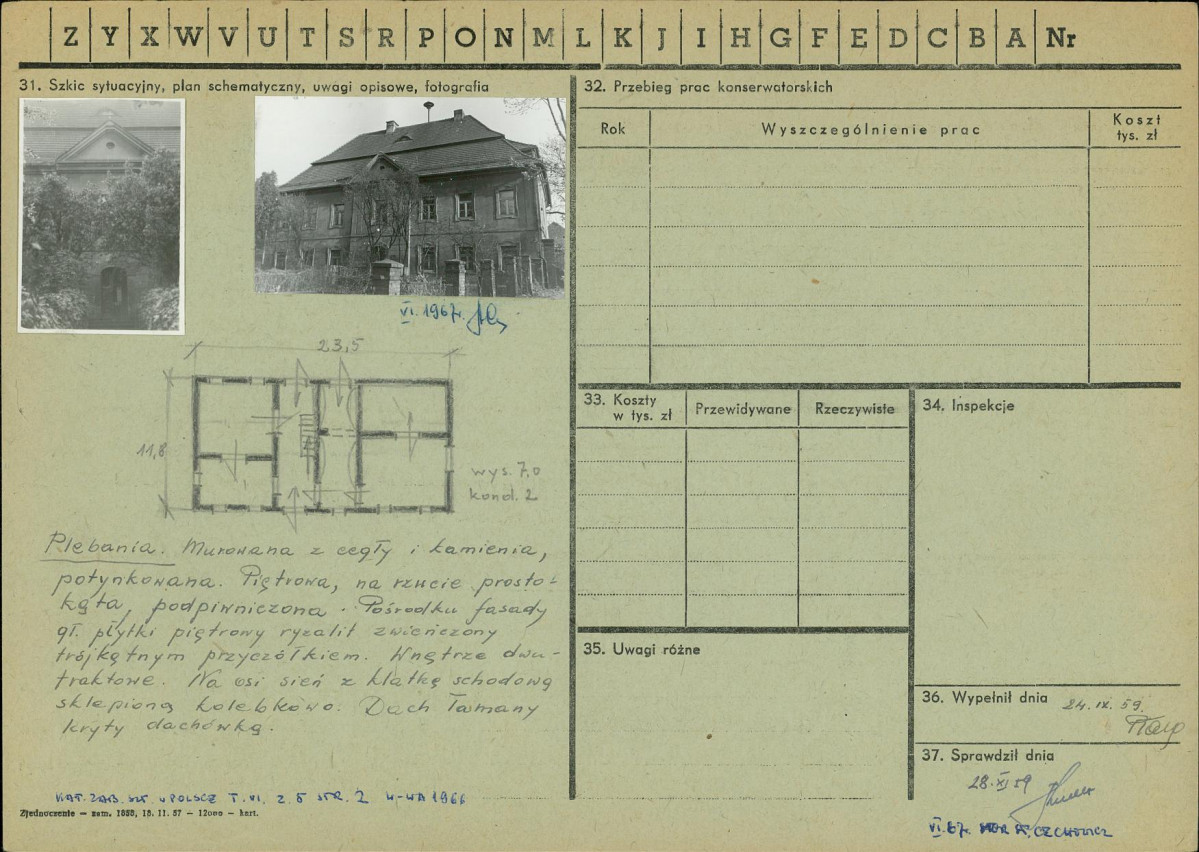 Z Y X W V U T S R P O N M L K J I H G F E D C B A Nr
31. Szkic sytuacyjny, plan schematyczny, uwagi opisowe, fotografia
VI. 1967r.
23,5
11,8
wys. 7,0
kond. 2
Plebania. Murowana z cegły i kamienia,
potynkowana. Piętrowa, na rzucie prosto-
kąta, podpiwniczona. Pośrodku fasady
gł. płytki piętrowy ryzalit zwieńczony
trójkątnym przyczółkiem. Wnętrze dwu-
traktowe. Na osi sień z klatką schodową
sklepioną kolebkowo. Dach łamany
kryty dachówką.
KAT. ZAB. SZT. W POLSCE T. VI. Z. 5 STR. 2 W-WA 1966
Zjednoczenie — zam. 1888, 18. 11. 57 — 12000 — kart.
32. Przebieg prac konserwatorskich
Rok Wyszczególnienie prac Koszt
tys. zł
33. Koszty
w tys. zł Przewidywane Rzeczywiste
34. Inspekcje
35. Uwagi różne
36. Wypełnił dnia 24. IX. 59.
37. Sprawdził dnia
28. XI 59
VI. 67r. CZECHOWICZ